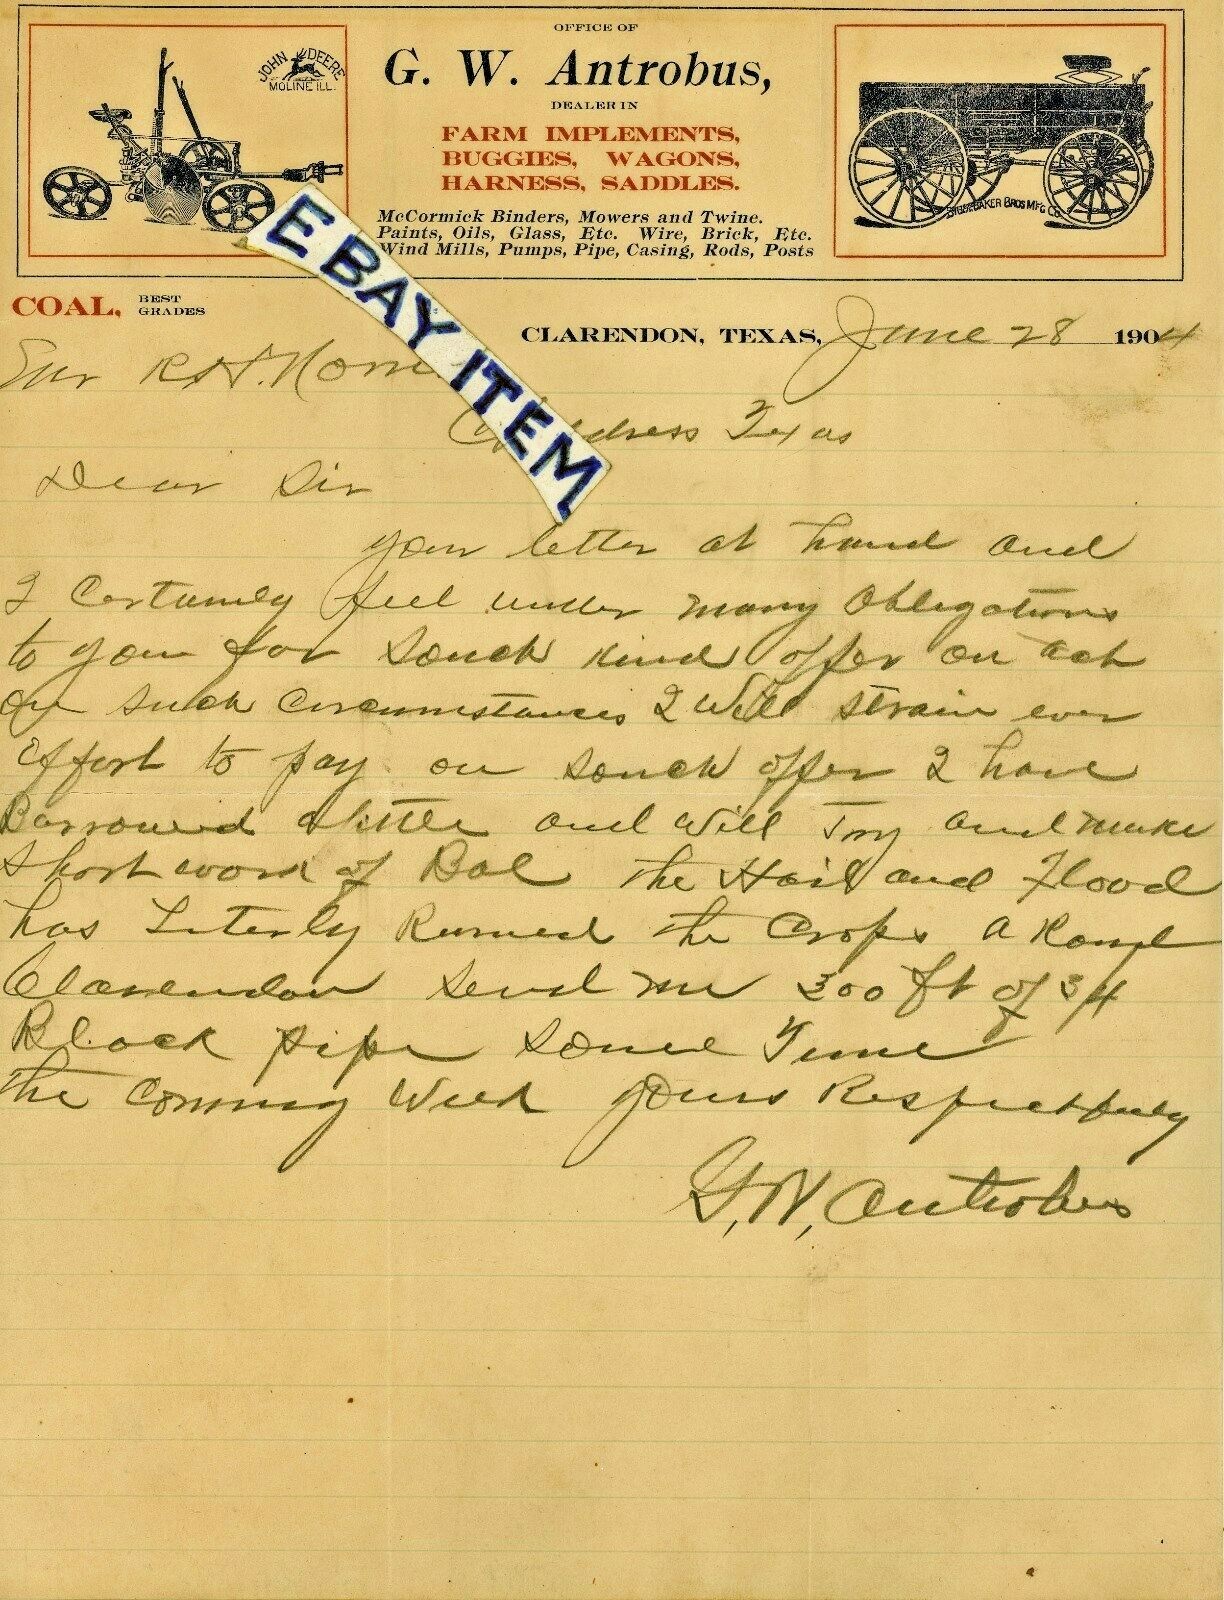 OFFICE OF
G. W. Antrobus,
DEALER IN
FARM IMPLEMENTS,
BUGGIES, WAGONS,
HARNESS, SADDLES.
McCormick Binders, Mowers and Twine.
Paints, Oils, Glass, Etc. Wire, Brick, Etc.
Wind Mills, Pumps, Pipe, Casing, Rods, Posts
JOHN DEERE
MOLINE ILL.
STUDEBAKER BROS MFG CO.
COAL, BEST GRADES
EBAY ITEM
CLARENDON, TEXAS, June 28 1904
R H.
Texas
Dear Sir
your letter at hand and
I Certainly feel under many Obligations
to you for Souch kind offer on
on such Circumstances I Will Strain ever
Effort to pay on souch offer I have
Barrowed alittle and Will Try and make
Short work of Bal the Hail and Flood
has Literly Ruined the Crops a Round
Clarendon Send me 300 ft of 3/4
Black pipe some Time
the Coming Week yours Respectfuly
G. W. Antrobus